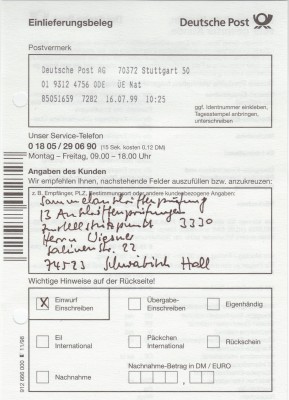 Einlieferungsbeleg
Deutsche Post
Postvermerk
Deutsche Post AG 70372 Stuttgart 50
01 9312 4756 0DE ÜE Nat
85051659 7282 16.07.99 10:25
ggf. Identnummer einkleben,
Tagesstempel anbringen,
unterschreiben
Unser Service-Telefon
0 18 05 / 29 06 90 (15 Sek. kosten 0,12 DM)
Montag – Freitag, 09.00 – 18.00 Uhr
Angaben des Kunden
Wir empfehlen Ihnen, nachstehende Felder auszufüllen bzw. anzukreuzen:
z. B. Empfänger, PLZ, Bestimmungsort oder andere kundenbezogene Angaben:
Sammelanschriftenprüfung
13 Anschriftenprüfungen
Zustellstützpunkt 3330
Herrn Wiesner
Salinenstr. 22
74523 Schwäbisch Hall
Wichtige Hinweise auf der Rückseite!
X Einwurf Einschreiben
Übergabe-Einschreiben
Eigenhändig
Eil International
Päckchen International
Rückschein
Nachnahme
Nachnahme-Betrag in DM / EURO
912 666 000 E 11/98